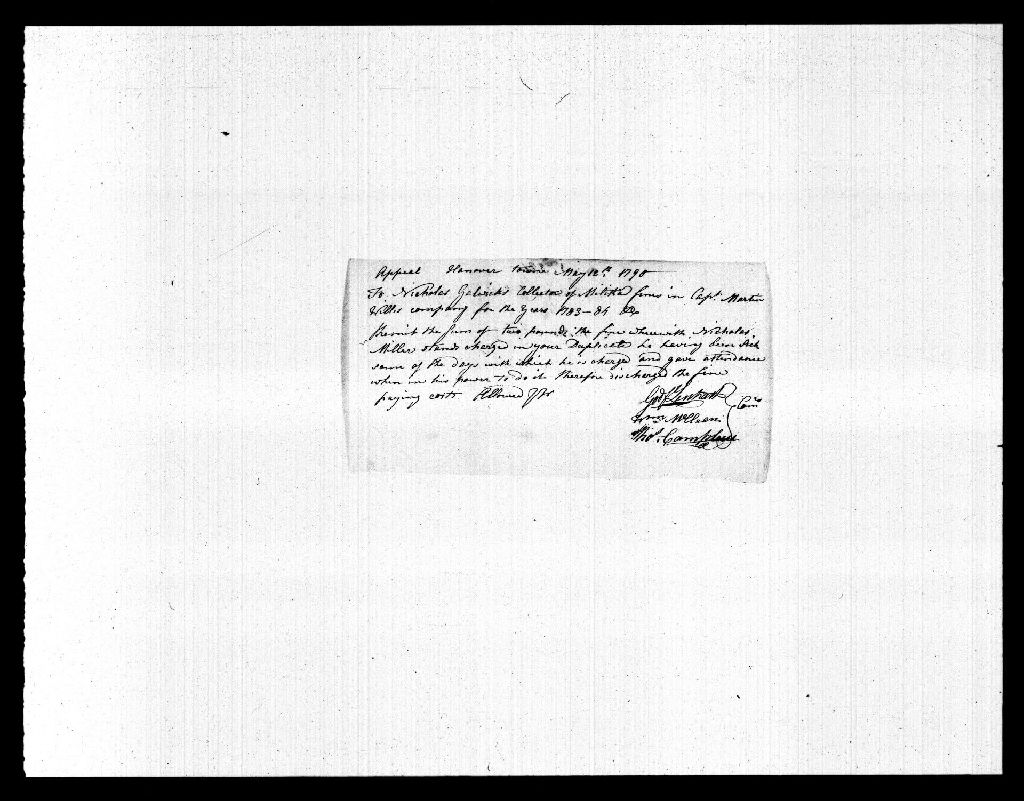 Appeal Hanover towne May 12th 1790
To Nicholas Gelwicks Collector of Militia fines in Capt. Martin
Willis company for the Years 1783 – 84 &c
Remit the sum of two pounds the fine wherewith Nicholas
Miller stands charged in your Duplicate he having been sick
some of the days with which he is charged and gave attendance
when in his power to do it therefore discharged the fine
paying costs Allowed
Wm McClean Com
Thos. Campbell